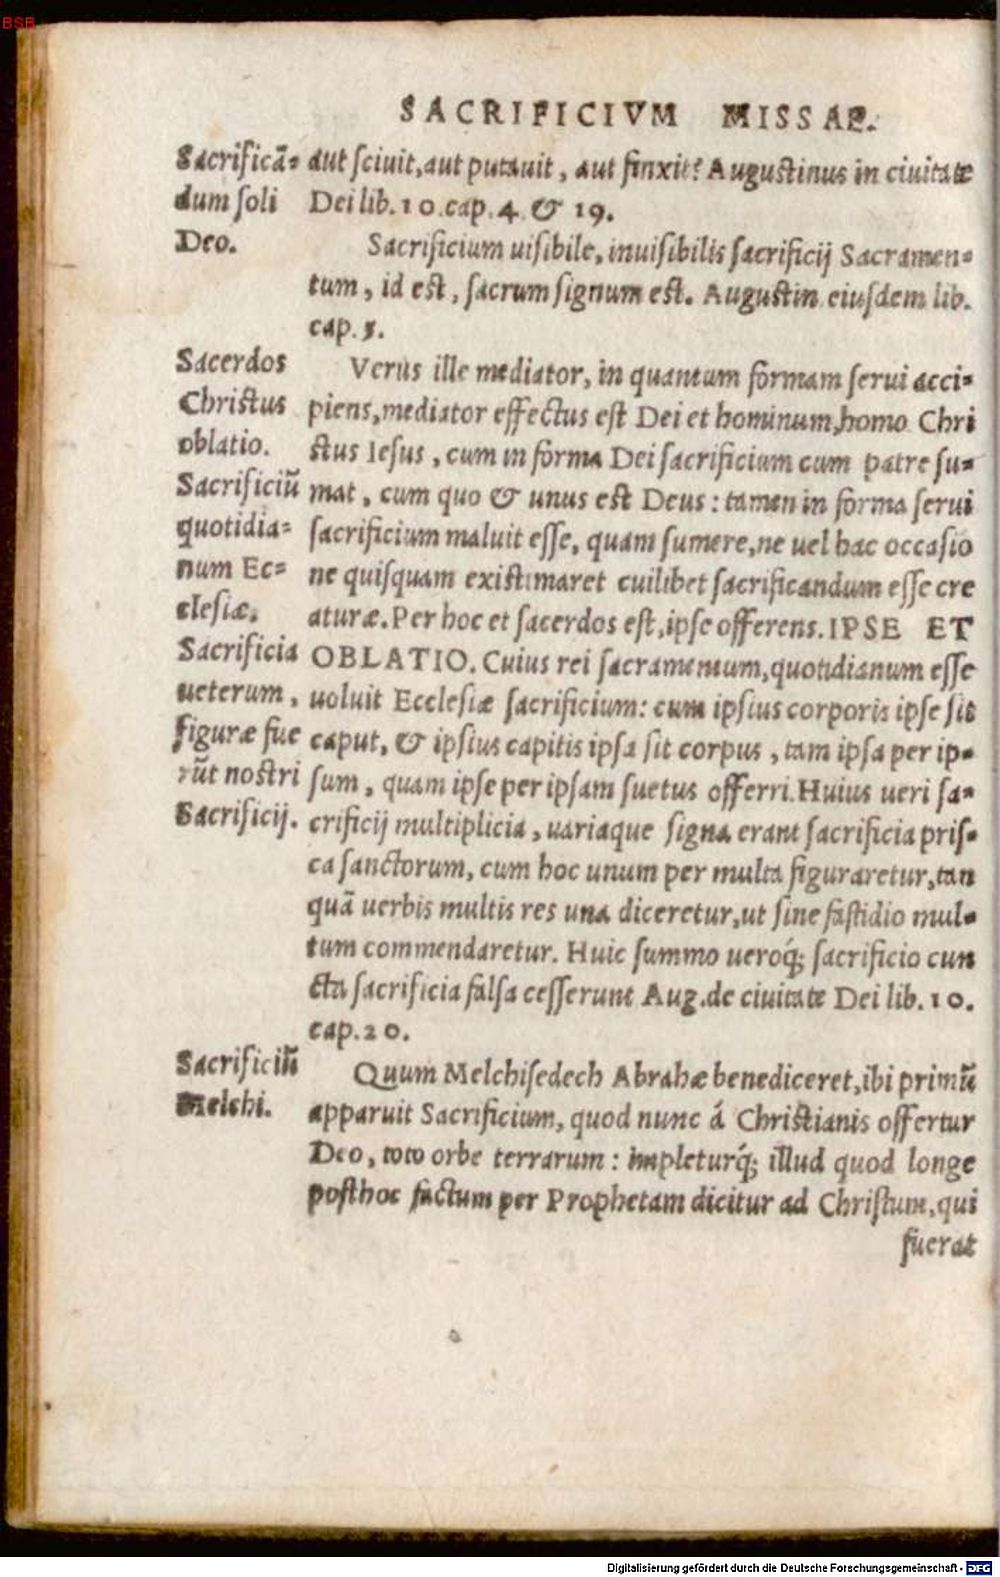 BSB
SACRIFICIVM MISSAE.
Sacrificā=
dum soli
Deo.
aut sciuit,aut putauit, aut finxit? Augustinus in ciuitate
Dei lib.10.cap.4.& 19.
Sacrificium uisibile, inuisibilis sacrificij Sacramen=
tum, id est, sacrum signum est. Augustin eiusdem lib.
cap.5.
Sacerdos
Christus
oblatio.
Sacrificiū
quotidia=
num Ec=
clesiæ.
Sacrificia
ueterum,
figuræ fue
rūt nostri
Sacrificij.
Verus ille mediator, in quantum formam serui acci=
piens,mediator effectus est Dei et hominum,homo Chri
stus Iesus, cum in forma Dei sacrificium cum patre su=
mat, cum quo & unus est Deus: tamen in forma serui
sacrificium maluit esse, quam sumere,ne uel hac occasio
ne quisquam existimaret cuilibet sacrificandum esse cre
aturæ.Per hoc et sacerdos est,ipse offerens.IPSE ET
OBLATIO. Cuius rei sacramentum,quotidianum esse
uoluit Ecclesiæ sacrificium: cum ipsius corporis ipse sit
caput, & ipsius capitis ipsa sit corpus, tam ipsa per ip=
sum, quam ipse per ipsam suetus offerri.Huius ueri sa=
crificij multiplicia, uariaque signa erant sacrificia pris=
ca sanctorum, cum hoc unum per multa figuraretur,tan
quā uerbis multis res una diceretur,ut sine fastidio mul=
tum commendaretur. Huic summo ueroq́; sacrificio cun
cta sacrificia falsa cesserunt Aug.de ciuitate Dei lib.10.
cap.20.
Sacrificiū
Melchi.
Quum Melchisedech Abrahæ benediceret,ibi primū
apparuit Sacrificium, quod nunc á Christianis offertur
Deo, toto orbe terrarum: impleturq́; illud quod longe
posthoc factum per Prophetam dicitur ad Christum,qui
fuerat
Digitalisierung gefördert durch die Deutsche Forschungsgemeinschaft - DFG